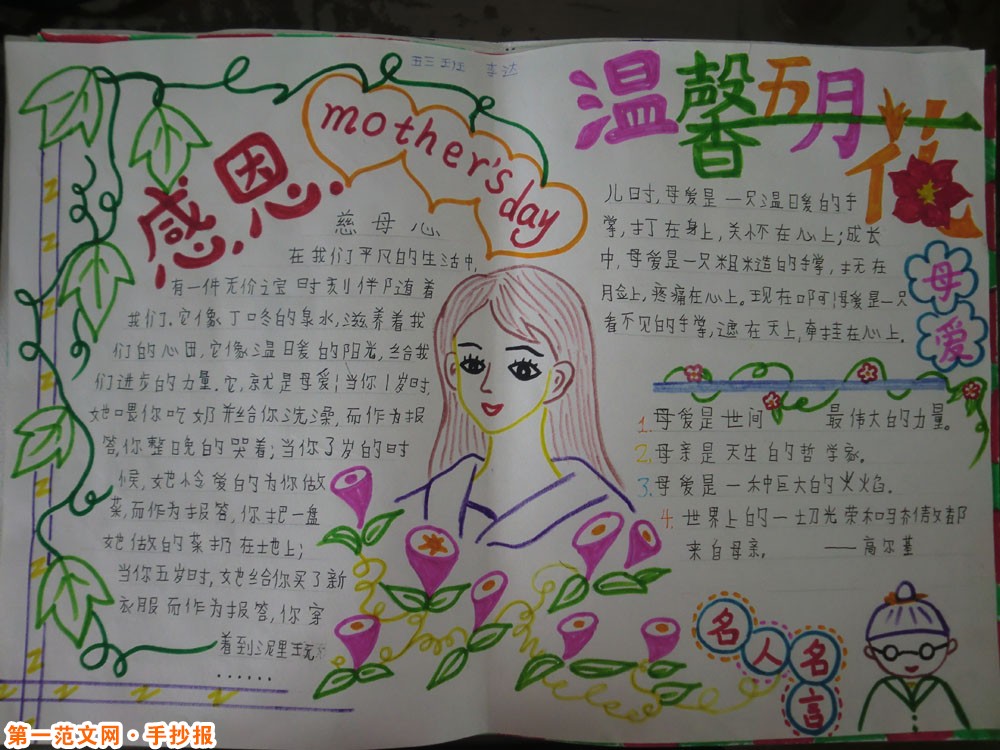 五三班 李达
mother's day
感恩
慈母心
在我们平凡的生活中,
有一件无价之宝时刻伴随着
我们.它像丁冬的泉水,滋养着我
们的心田,它像温暖的阳光,给我
们进步的力量.它,就是母爱!当你1岁时,
她喂你吃奶并给你洗澡,而作为报
答,你整晚的哭着;当你了岁的时
候,她怜爱的为你做
菜,而作为报答,你把一盘
她做的菜扔在地上;
当你五岁时,她给你买了新
衣服而作为报答,你穿
着到泥里玩
......
温馨五月花
儿时,母爱是一只温暖的手
掌,打在身上,关怀在心上;成长
中,母爱是一只粗糙的手掌,
月佥上,疼痛在心上。现在啊可母爱是一只
看不见的手掌,遮在天上,牵挂在心上。
母爱
1.母爱是世间 最伟大的力量。
2.母亲是天生的哲学家。
3.母爱是一种巨大的火焰。
4.世界上的一切光荣和骄傲都
来自母亲。 ——高尔基
名人名言
第一范文网·手抄报